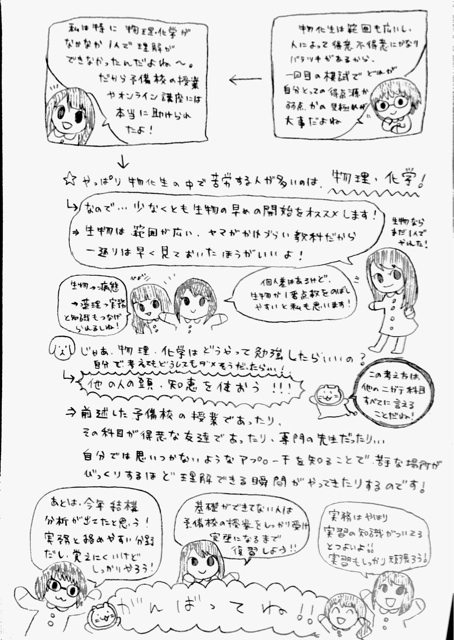 物化生は範囲も広いし、
人によって得意不得意にかなり
バラツキがあるから、
一回目の模試でどれが
自分にとっての得点源か
弱点かの見極めが
大事だよね
私は特に物理・化学が
なかなか1人で理解が
できなかったんだよね〜。
だから予備校の授業
やオンライン講座には
本当に助けられ
たよ!
☆やっぱり物化生の中で苦労する人が多いのは、物理・化学!
なので…少なくとも生物の早めの開始をオススメします!
→生物は範囲が広い、ヤマがかけづらい教科だから
一通りは早く見ておいたほうがいいよ!
生物なら
まだ1人で
やれた!
個人差はあるけど、
生物が1番点数をのばし
やすいと私も思います!
生物→病態
→薬理→実務
と知識もつなげ
られるしね!
じゃあ、物理・化学はどうやって勉強したらいいの?
自分で考えてもどうしてもダメそうだったらい!
他の人の頭・知恵を使おう!!!
この考え方は、
他のニガテ科目
すべてに言える
ことだね!
⇒前述した予備校の授業であったり、
その科目が得意な友達であったり、専門の先生だったり…
自分では思いつかないようなアプローチを知ることで、苦手な場所が
びっくりするほど理解できる瞬間がやってきたりするのです!
あとは、今年結構
分析が出てたと思う!
実務と絡めやすい分野
だし、覚えにくいけど
しっかりやろう!
基礎ができてない人は
予備校の授業をしっかり受け
完璧になるまで
復習しよう!!
実務はやはり
実習の知識がついてる
とつよいよ!!
実習もしっかり頑張ろう!
がんばってね!!